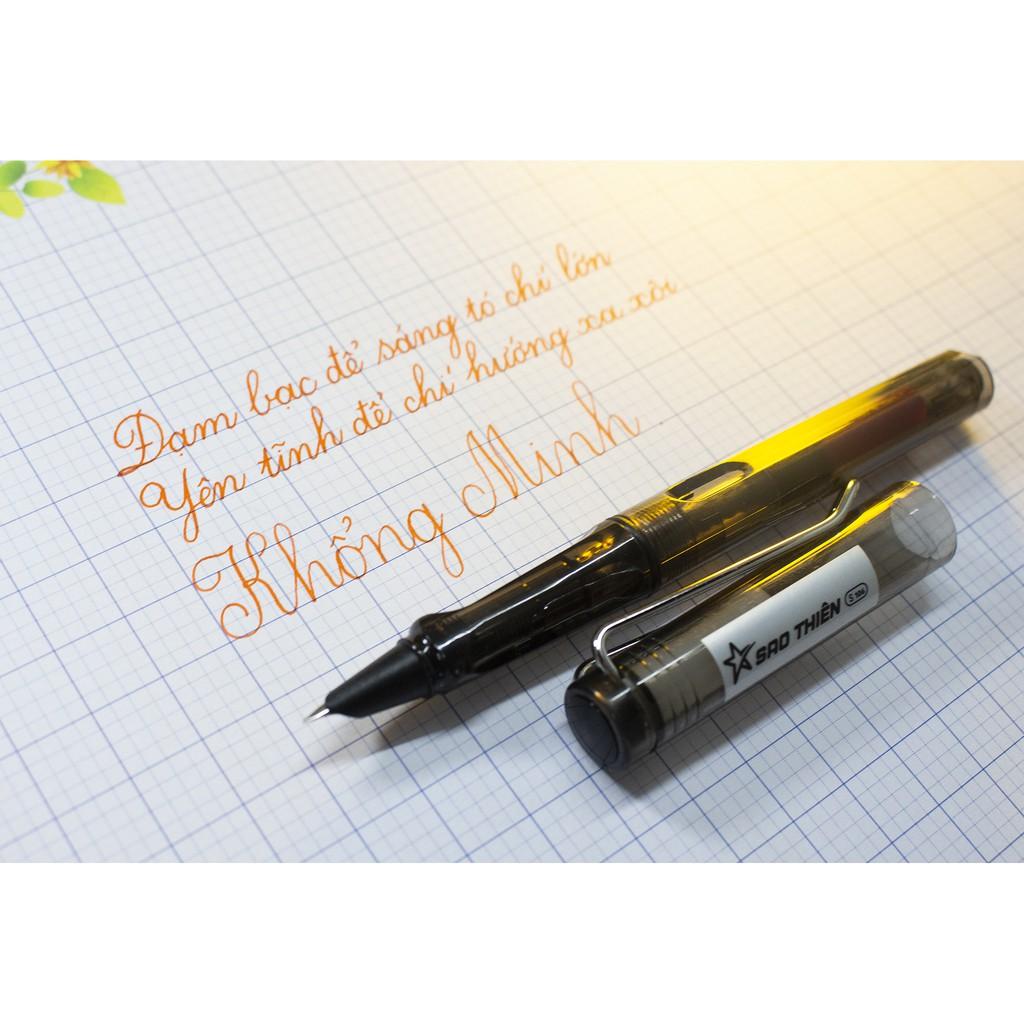 Đạm bạc để sáng tỏ chí lớn
Yên tĩnh để chí hướng xa xôi
Khổng Minh
SAO THIÊN S 106